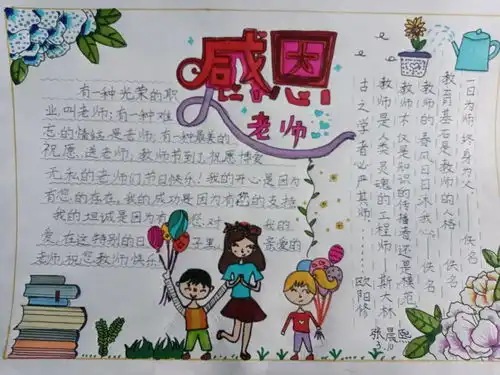 感恩
老师
有一种光荣的职
业,叫老师;有一种难
忘的情结,是老师;有一种最美的
祝愿,送老师;教师节到了,祝愿博爱
无私的老师们节日快乐!我的开心是因为
有您的存在,我的成功是因为有您的支持
我的坦诚是因为有您,对 我的
爱,在这特别的日 子里, 亲爱的
老师,祝您教师快乐
一日为师,终身为父 佚名
教育基石是教师的人格 佚名
教师的春风日日沐我心 佚名
教师不仅是知识的传播者还是模范
教师是人类灵魂的工程师 斯大林
古之学者必严其师…… 欧阳修
张晨熙
3.10